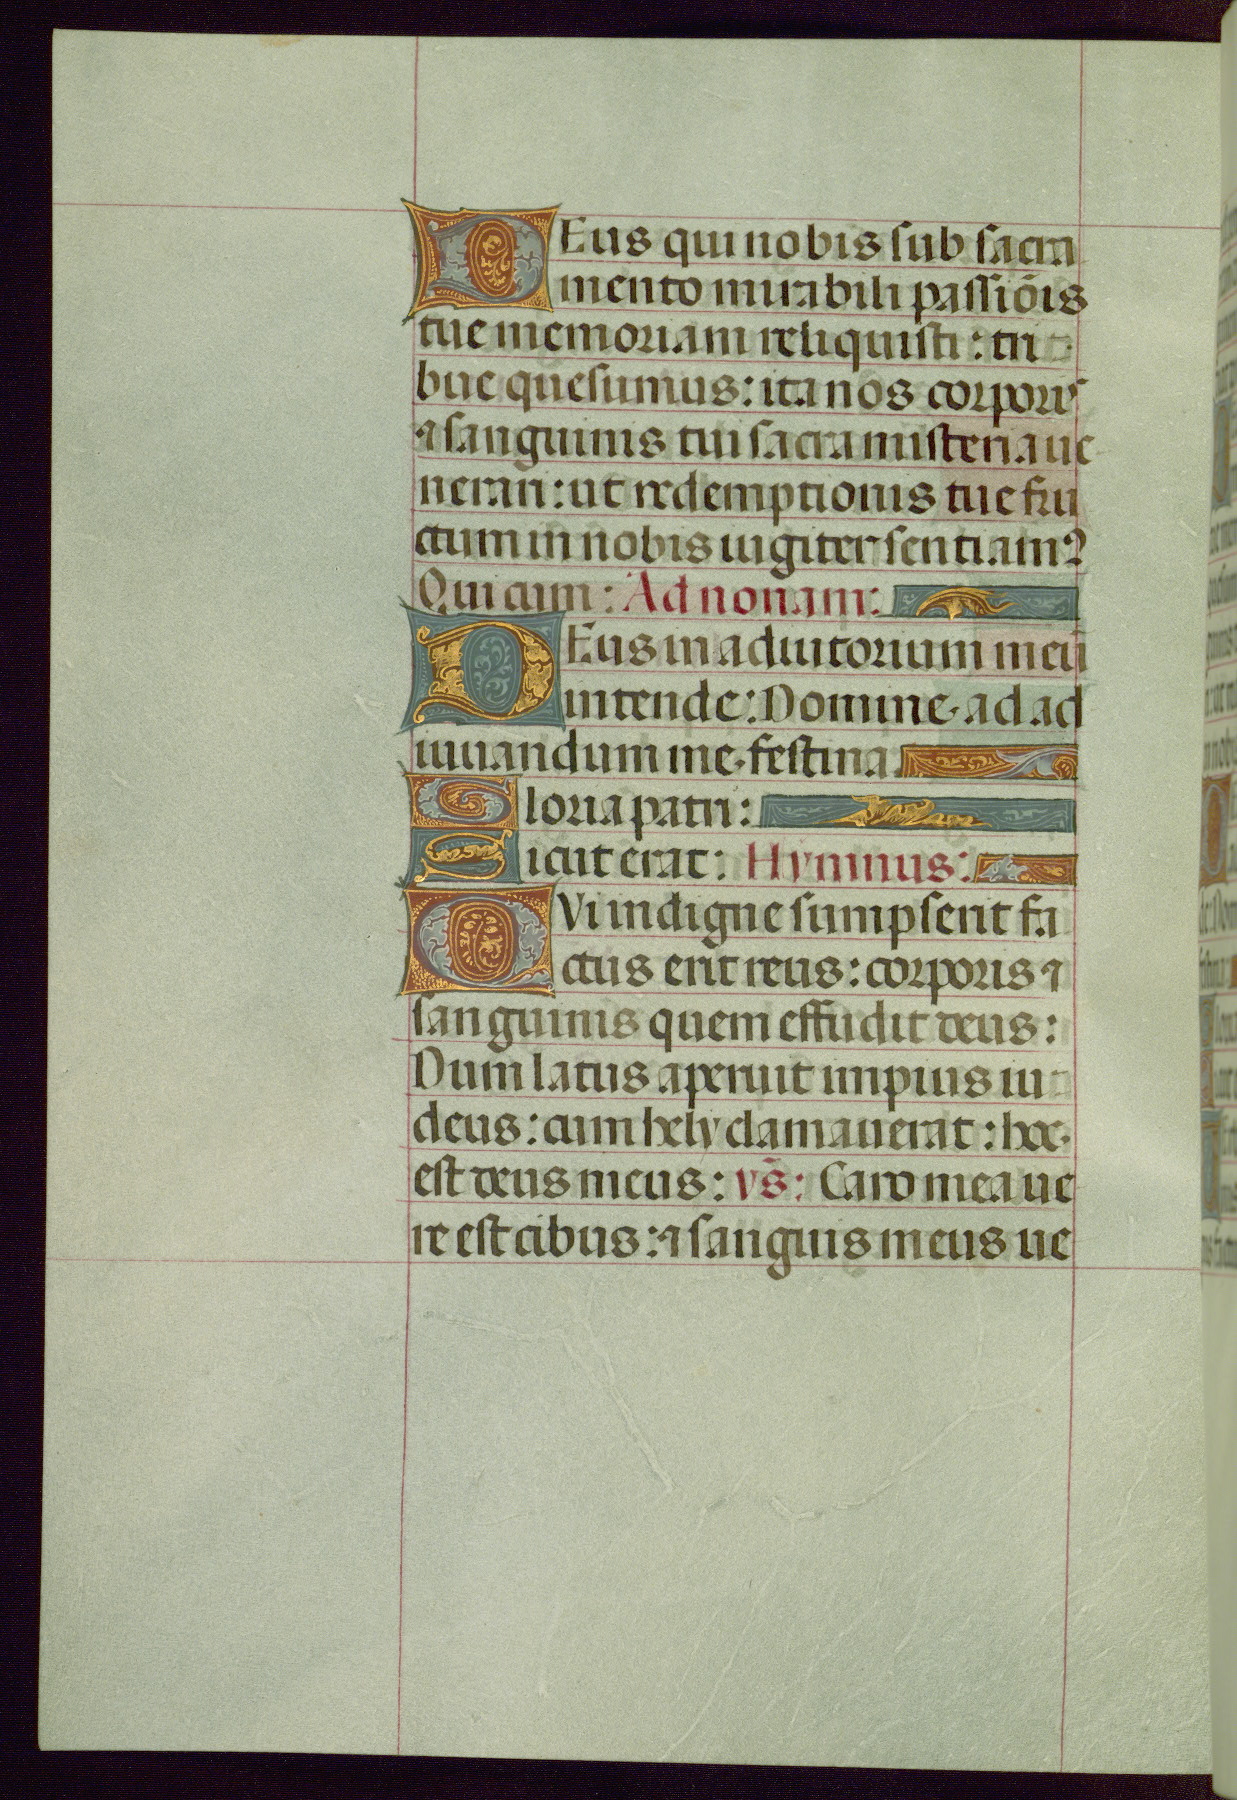 DEus qui nobis sub sacra
mento mirabili passiōis
tue memoriam reliquisti: tri
bue quesumus: ita nos corporis
⁊ sanguinis tui sacra misteria ue
nerari: ut redemptionis tue fru
ctum in nobis iugiter sentiamꝰ
Qui cum: Ad nonam:
DEus in adiutorium meū
intende: Domine ad ad
iuuandum me festina:
Gloria patri:
Sicut erat: Hymnus:
QVi indigne sumpserit fa
ctus erit reus: corporis ⁊
sanguinis quem effudit deus:
Dum latus aperuit impius iu
deus: cum hely clamauerat: hoc
est deus meus: vs̄: Caro mea ue
re est cibus: ⁊ sanguis meus ue